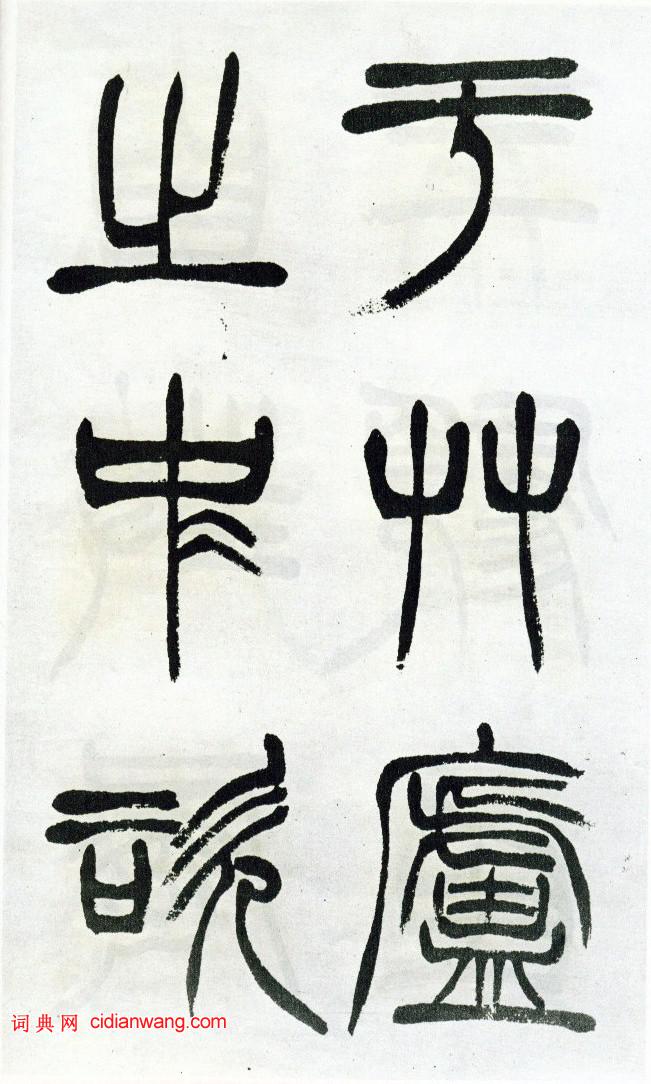 于艸廬
之中咨
词典网 cidianwang.com